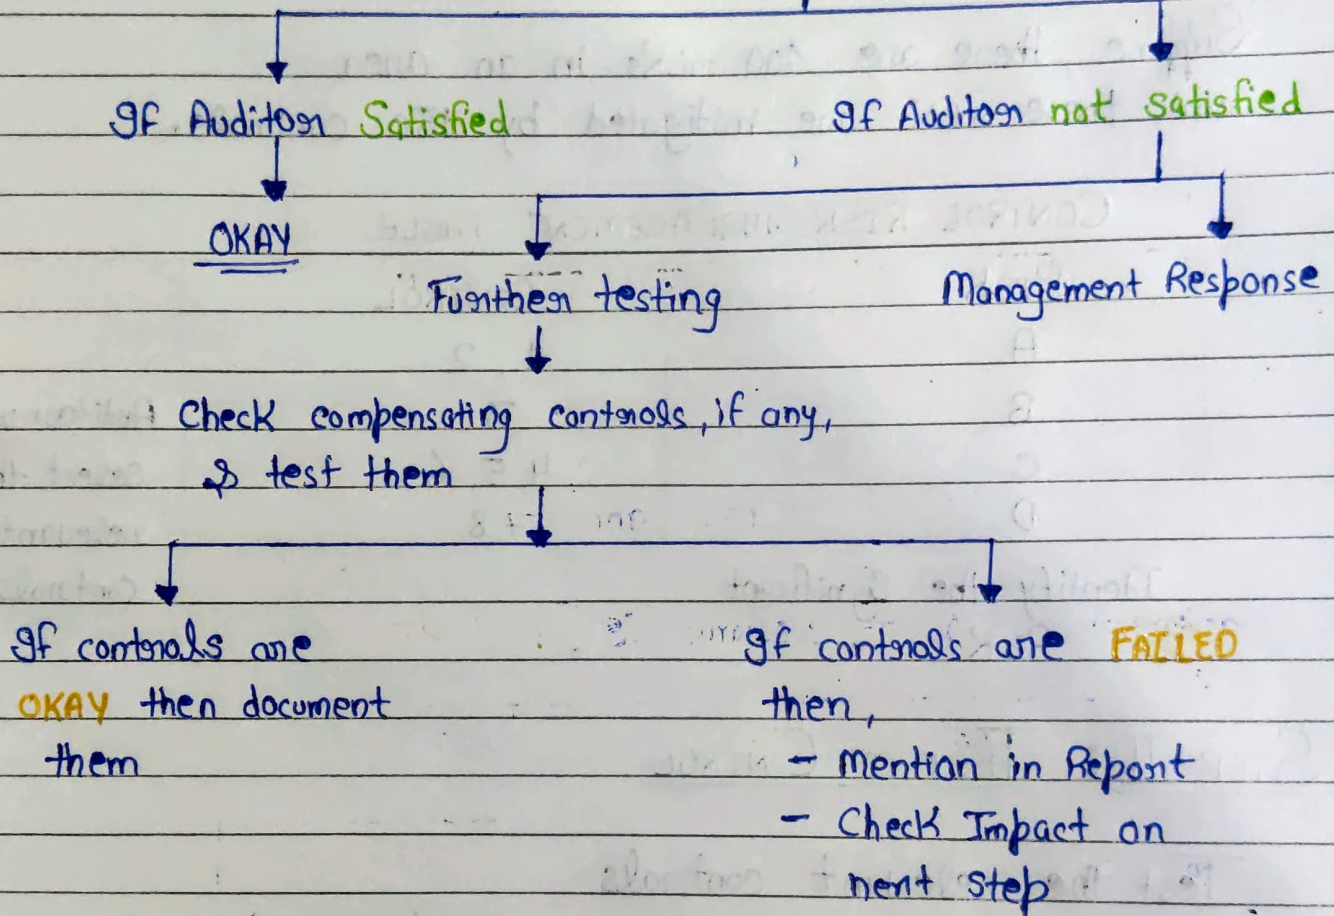 If Auditor Satisfied
If Auditor not satisfied
OKAY
Further testing
Management Response
Check compensating controls, if any,
& test them
If controls are
OKAY then document
them
If controls are FAILED
then,
- Mention in Report
- Check Impact on
nent step